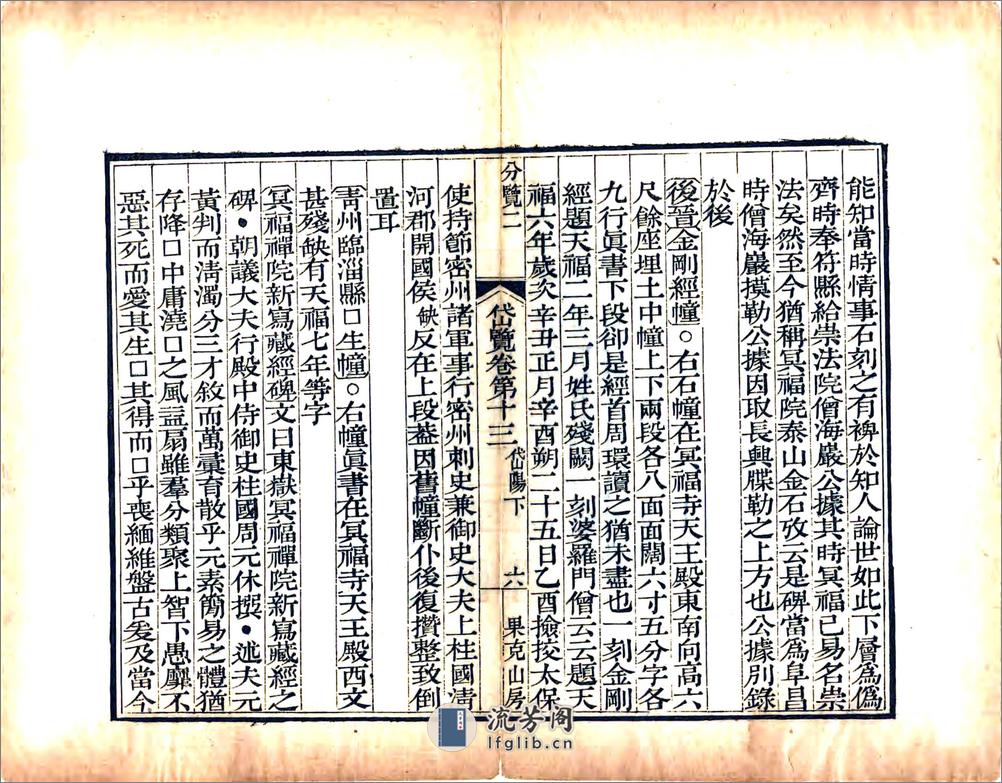 能知當時情事石刻之有裨於知人論世如此下層爲僞
齊時奉符縣給崇法院僧海巖公據其時冥福已易名崇
法矣然至今猶稱冥福院泰山金石攷云是碑當爲阜昌
時僧海巖摸勒公據因取長興牒勒之上方也公據別錄
於後
後晉金剛經幢○右石幢在冥福寺天王殿東南向高六
尺餘座埋土中幢上下兩段各八面面闊六寸五分字各
九行眞書下段卻是經首周環讀之猶未盡也一刻金剛
經題天福二年三月姓氏殘闕一刻婆羅門僧云云題天
福六年歲次辛丑正月辛酉朔二十五日乙酉撿挍太保
分覽二
岱覽卷第十三 岱陽下 十六 果克山房
使持節密州諸軍事行密州刺史兼御史大夫上柱國淸
河郡開國侯缺反在上段葢因舊幢斷仆後復攢整致倒
置耳
靑州臨淄縣口生幢○右幢眞書在冥福寺天王殿西文
甚殘缺有天福七年等字
冥福禪院新寫藏經碑文曰東嶽冥福禪院新寫藏經之
碑●朝議大夫行殿中侍御史柱國周元休撰●述夫元
黃判而淸濁分三才敘而萬彙育散乎元素簡易之體猶
存降口中庸澆口之風詓扇雖羣分類聚上智下愚靡不
惡其死而愛其生口其得而口乎喪緬維盤古爰及當今
流芳阁
lfglib.cn